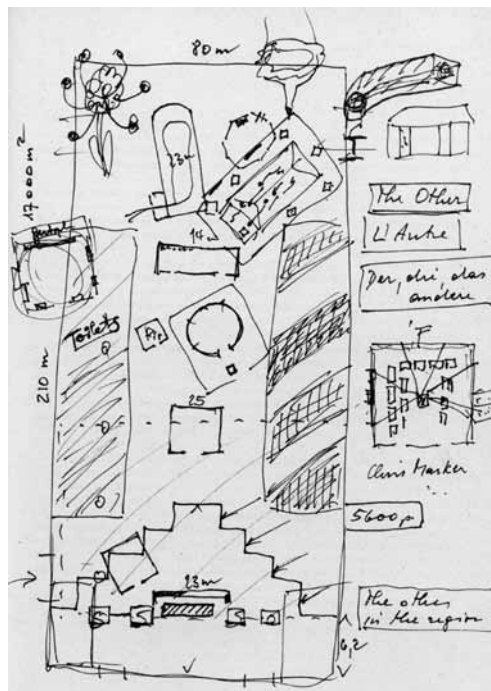 80m
17000 m²
23m
14m
The Other
L'Autre
Der, die, das
andere
Toilets
210 m
25
Chris Marker
5600p
23m
The other
in the region
6,2